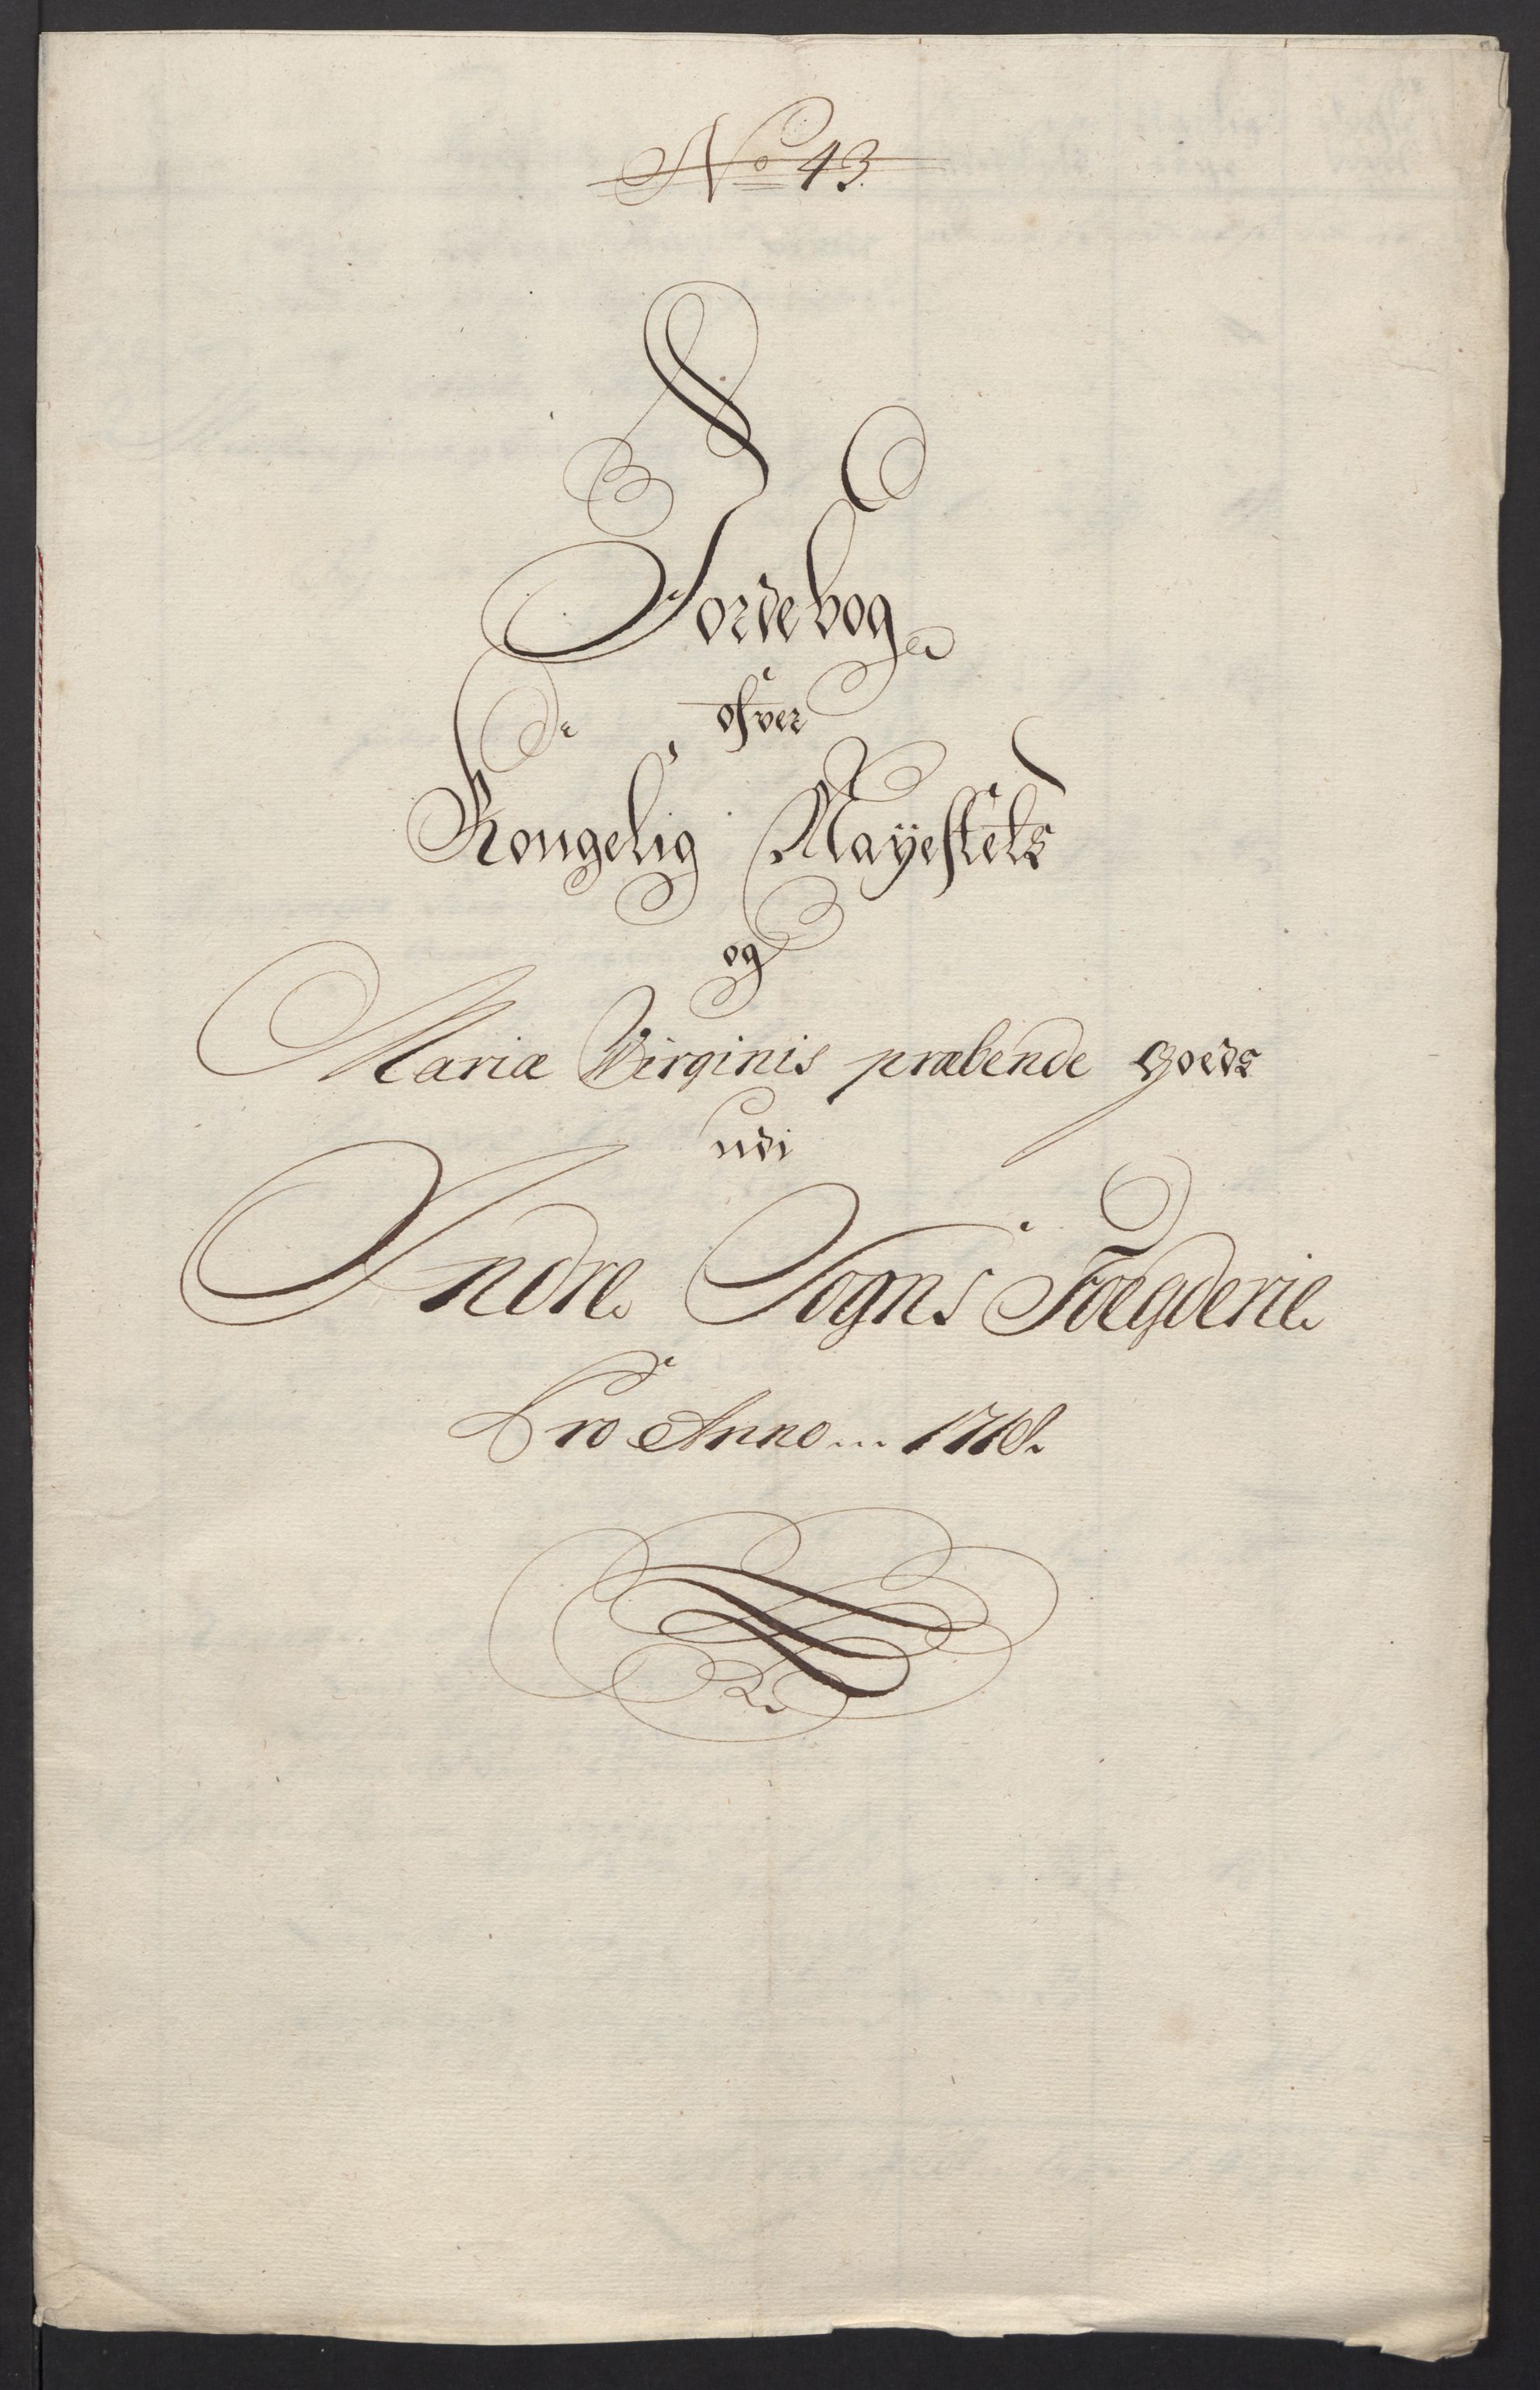 No 43.
Jordebog
ofver
Kongelig Mayestets
og
Mariæ Virginis præbende goeds
udi
Indre Sogns Foegderie
Pro Anno ... 1718.